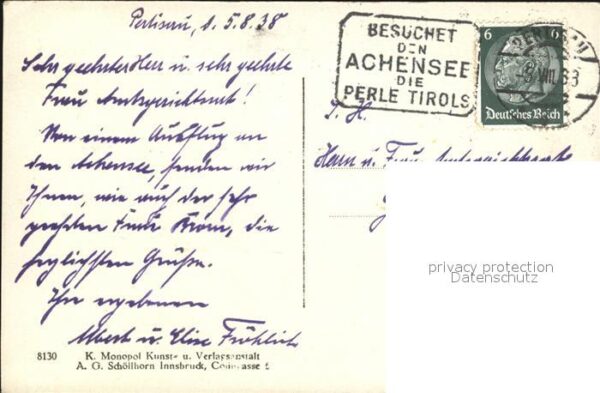 Pertisau, d. 5.8.38
Sehr geehrter Herr u. sehr geehrte
Frau Amtsgerichtsrat!
Von einem Ausflug an
den Achensee, senden wir
Ihnen, wie auch der sehr
geehrten Frau die
herzlichsten Grüße.
Ihre ergebenen
Albert u. Elise Fröhlich
8130 K. Monopol Kunst- u. Verlagsanstalt
A. G. Schöllhorn Innsbruck,
BESUCHET
DEN
ACHENSEE
DIE
PERLE TIROLS
6 6
Deutsches Reich
PERTISAU
VIII
S. H.
Herrn u. Frau Amtsgerichtsrat
privacy protection
Datenschutz